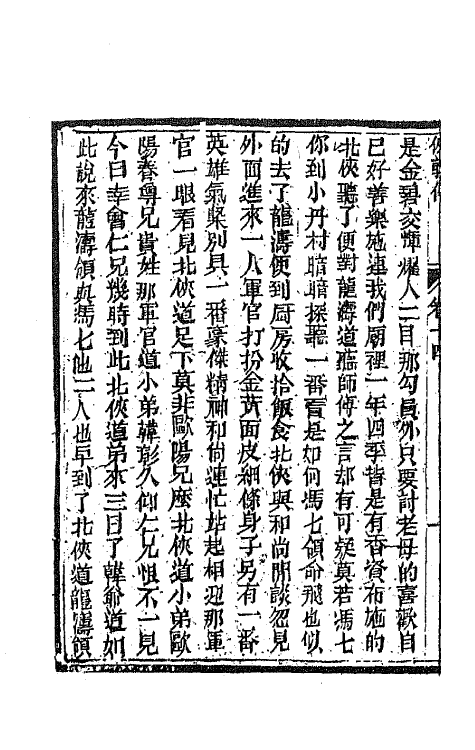 是金碧交輝耀人二目那勾員外只要討老母的喜歡自
已好善樂施連我們廟裡一年四季皆是有香資布施的
北俠聽了便對龍濤道聽師傅之言却有可疑莫若馮七
你到小丹村暗暗探聽一番看是如何馮七領命飛也似
的去了龍濤便到厨房收拾飯食北俠與和尚閒談忽見
外面進來一人軍官打扮金黃面皮細條身子另有一番
英雄氣槩別具一番豪傑精神和尚連忙站起相迎那軍
官一眼看見北俠道足下莫非歐陽兄麼北俠道小弟歐
陽春尊兄貴姓那軍官道小弟韓彰久仰仁兄恨不一見
今日幸會仁兄幾時到此北俠道弟來三日了韓爺道如
此說來龍濤領與馮七他二人也早到了北俠道龍濤領